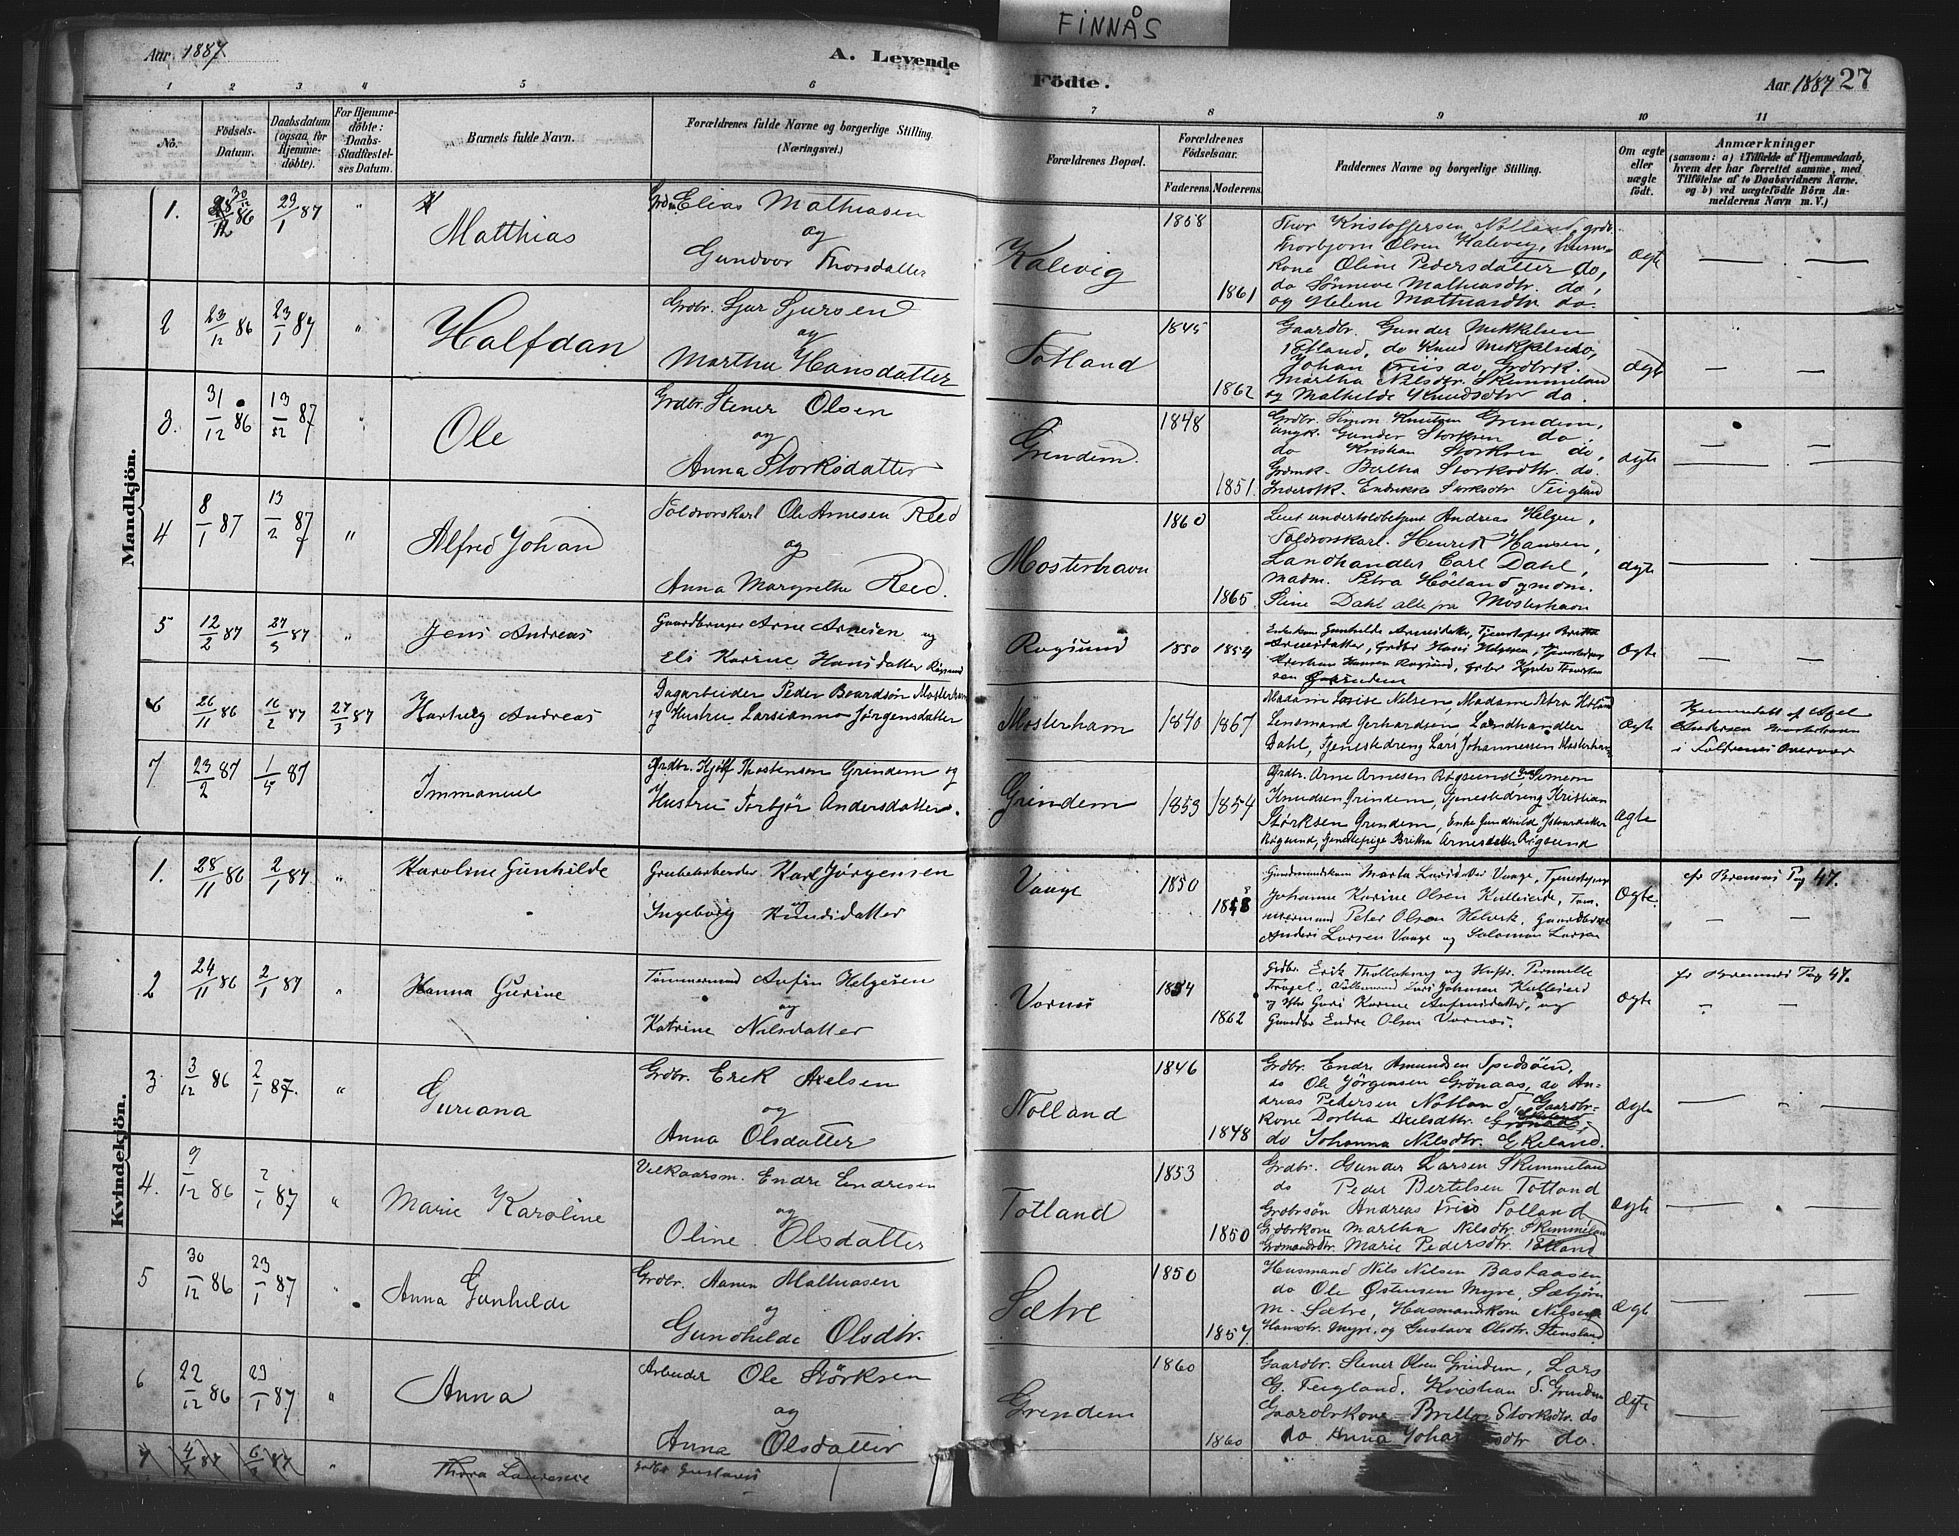 FINNÅS
Aar 1887.
A. Levende
Födte.
Aar 1887
27
1 2 3 4 5 6 7 8 9 10 11
No.
Födsels-
Datum.
Daabsdatum
(ogsaa for
Hjemme-
døbte).
For Hjemme-
døbte:
Daabs-
Stadfæstel-
ses Datum.
Barnets fulde Navn.
Forældrenes fulde Navne og borgerlige Stilling.
(Næringsvei.)
Forældrenes Bopæl.
Forældrenes
Födselsaar.
Faderens. Moderens.
Faddernes Navne og borgerlige Stilling.
Om ægte
eller
uægte
født.
Anmærkninger
(saasom: a) i Tilfælde af Hjemmedaab,
hvem der har forrettet samme, med
Tilføielse af to Daabsvidners Navne,
og b) ved uægtefödte Börn An-
melderens Navn m. V.)
Mandkjön.
1. 23/1 87 " Matthias
Elias Mathiasen
og
Gundvor Thorsdatter
Kalevig
1858
1861
Thor Kristoffersen Nolland, grdr.
Thorbjørn Olsen Kalevig, husm-
kone Oline Pedersdatter do,
do Sønneve Mathiasdtr. do,
og Helene Mathiasdtr do.
ægte
2 23/12 86 23/1 87 " Halfdan
Grdbr. Sjur Sjursen
og
Martha Hansdatter
Totland
1845
1862
Gaardbr. Gunder Mikkelsen
Totland, do Knud Mikkelsen do,
Johan Friis do, Grdbrk.
Martha Nilsdtr. Skimmeland
og Mathilde Knudsdtr do.
ægte
3. 31/12 86 13/2 87 " Ole
Grdbr. Stener Olsen
og
Anna Storksdatter
Grendem.
1848
1851.
Grdbr. Simon Knutsen Grendem,
ungk. Gunder Storksen do,
do Kristian Storksen do,
Grdmk. Bertha Storksdtr. do.
Teigland
ægte
4 8/1 87 13/2 87 " Alfred Johan
Toldrorskarl Ole Arnesen Reed
og
Anna Margrethe Reed.
Mosterhavn
1860
1865.
Andreas Helgen,
Toldrorskarl. Henrik Hansen,
Landhandler Carl Dahl,
Madm. Petra Høiland, madm.
Stine Dahl alle fra Mosterhavn
ægte
5 12/2 87 27/3 87 " Jens Andreas
Gaardbruger Arne Arnesen og
Eli Karine Hansdatter Røgsund
Røgsund
1850 1854
Gunhilde Arnesdatter, Tjenestepige Britha
Arnesdatter, Grdbr Hans Helgesen,
Kristian Hansen Røgsund,
ægte
6 26/11 86 16/2 87 27/3 87 Hartvig Andreas
Dagarbeider Peder Baardsøn Mosterhavn
og Hustru Larsianna Jørgensdatter
Mosterhavn
1840 1857
Madam Lovise Nelsen, Madam Petra Høiland
Lensmand Gerhardsen, Landhandler
Dahl, Tjenestedreng Lars Johannessen Mosterhavn
ægte
7 23/2 87 87 Immanuel
Grdbr. Kjøtt Thostenson Grindem og
Hustru Torbjør Andersdatter.
Grindem
1853 1854
Grdbr. Arne Arnesen Røgsund, Simeon
Knudsen Grindem, Tjenestedreng Kristian
Størksen Grindem, Enke Gundhild Iversdatter
Røgsund, Tjenestepige Britha Arnesdatter Røgsund
ægte
Kvindekjön.
1. 28/11 86 2/1 87 " Karoline Gunhilde
Karl Jørgensen
og
Ingeborg Knudsdatter
Vaage
1850
1858
Marta Larsdatter Vaage, Tjenestepige
Johanne Karine Olsen Kulleseide, Tøm-
mermand Peter Olsen Helvik, Gaardbruger
Anders Larsen Vaage og Salomon Larsen
ægte.
cfr Bremnes Pag 47.
2 24/11 86 2/1 87 " Hanna Gurine
Tømmermand Anfin Helgesen
og
Katrine Nilsdatter
Vornæs
1854
1862
Grdbr. Erik Thollaksen og Hustr. Pernille
Lars Johnsen Kulleseid
Guri Karine Anfinsdatter, og
Gaardbr Endre Olsen Vornæs.
ægte
cfr Bremnes Pag 47.
3 3/12 86 2/1 87. " Guriana
Grdbr. Erik Axelsen
og
Anna Olsdatter
Nolland
1846
1848
Grdbr. Endre Amundsen Spidsøen,
do Ole Jörgensen Grönaas, do An-
dreas Pedersen Notland, Gaardbr-
kone Dortha Axelsdtr.
do Johanna Nilsdtr. Ekeland.
ægte
4. 9/12 86 2/1 87 " Marie Karoline
Vilkaarsm. Endre Endresen
og
Oline Olsdatter
Totland
1853
1850
Grdbr. Gunder Larsen Skimmeland
do Peder Bertelsen Totland
Grdbrsön Andreas Friis Totland
Grdbrkone Martha Nilsdtr. Skimmeland
Grdmandsdtr. Marie Pedersdtr. Totland
ægte
5 30/12 86 23/1 87 " Anna Gunhilde
Grdbr. Hanen Mathiasen
og
Gundhilde Olsdtr.
Sætre
1850
1857
Husmand Nils Nilsen Bastaasen,
do Ole Østensen Myre, Sæbjörn
M. Sætre, Husmandskone Nilsena
Hansdtr. Myre, og Gustava Olsdtr. Stensland
ægte
6 22/12 86 23/1 87 " Anna
Arbeider Ole Störksen
og
Anna Olsdatter
Grendem
1860
1860
Gaardbr. Stener Olsen Grindem, Lars
G. Teigland, Kristian S. Grindem
Gaardbrkone Britha Storksdtr. do
do Anna do.
ægte
7 87 87 " Thora Laurense
Grdbr Gustav